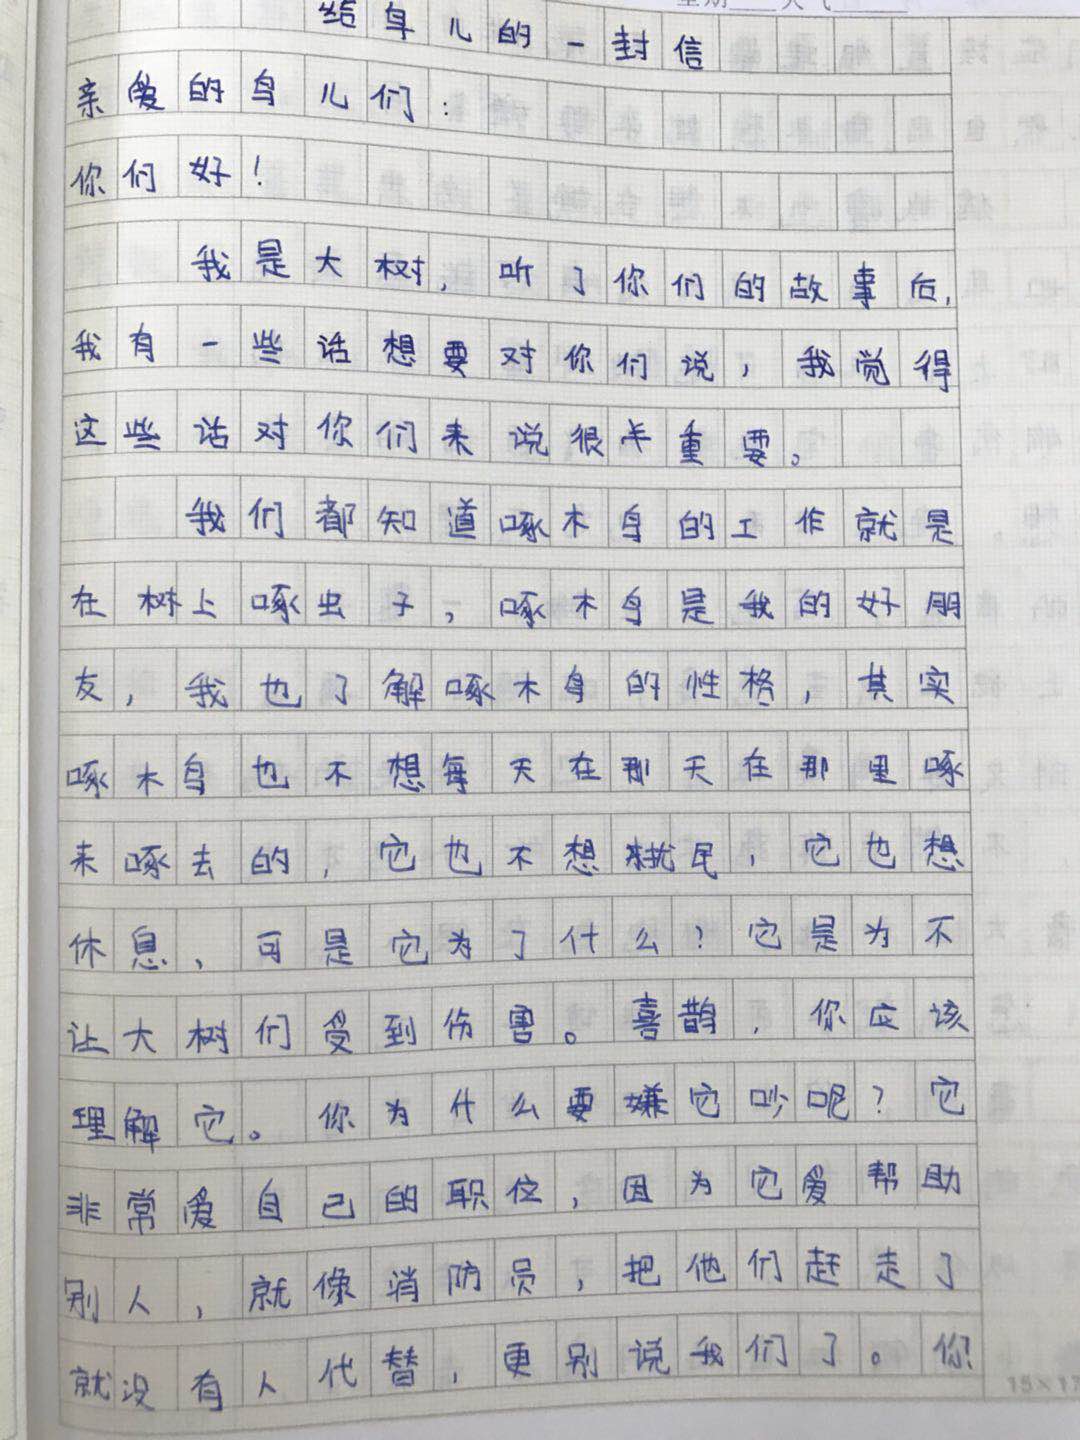 星期 天气
给鸟儿的一封信
亲爱的鸟儿们:
你们好!
我是大树,听了你们的故事后,
我有一些话想要对你们说,我觉得
这些话对你们来说很半重要。
我们都知道啄木鸟的工作就是
在树上啄虫子,啄木鸟是我的好朋
友,我也了解啄木鸟的性格,其实
啄木鸟也不想每天在那天在那里啄
来啄去的,它也不想扰民,它也想
休息,可是它为了什么?它是为不
让大树们受到伤害。喜鹊,你应该
理解它。你为什么要嫌它吵呢?它
非常爱自己的职位,因为它爱帮助
别人,就像消防员,把他们赶走了
就没有人代替,更别说我们了。你